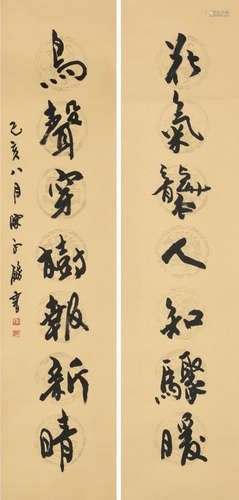 花氣襲人知驟暖
鳥聲穿樹報新晴
乙亥八月陳書